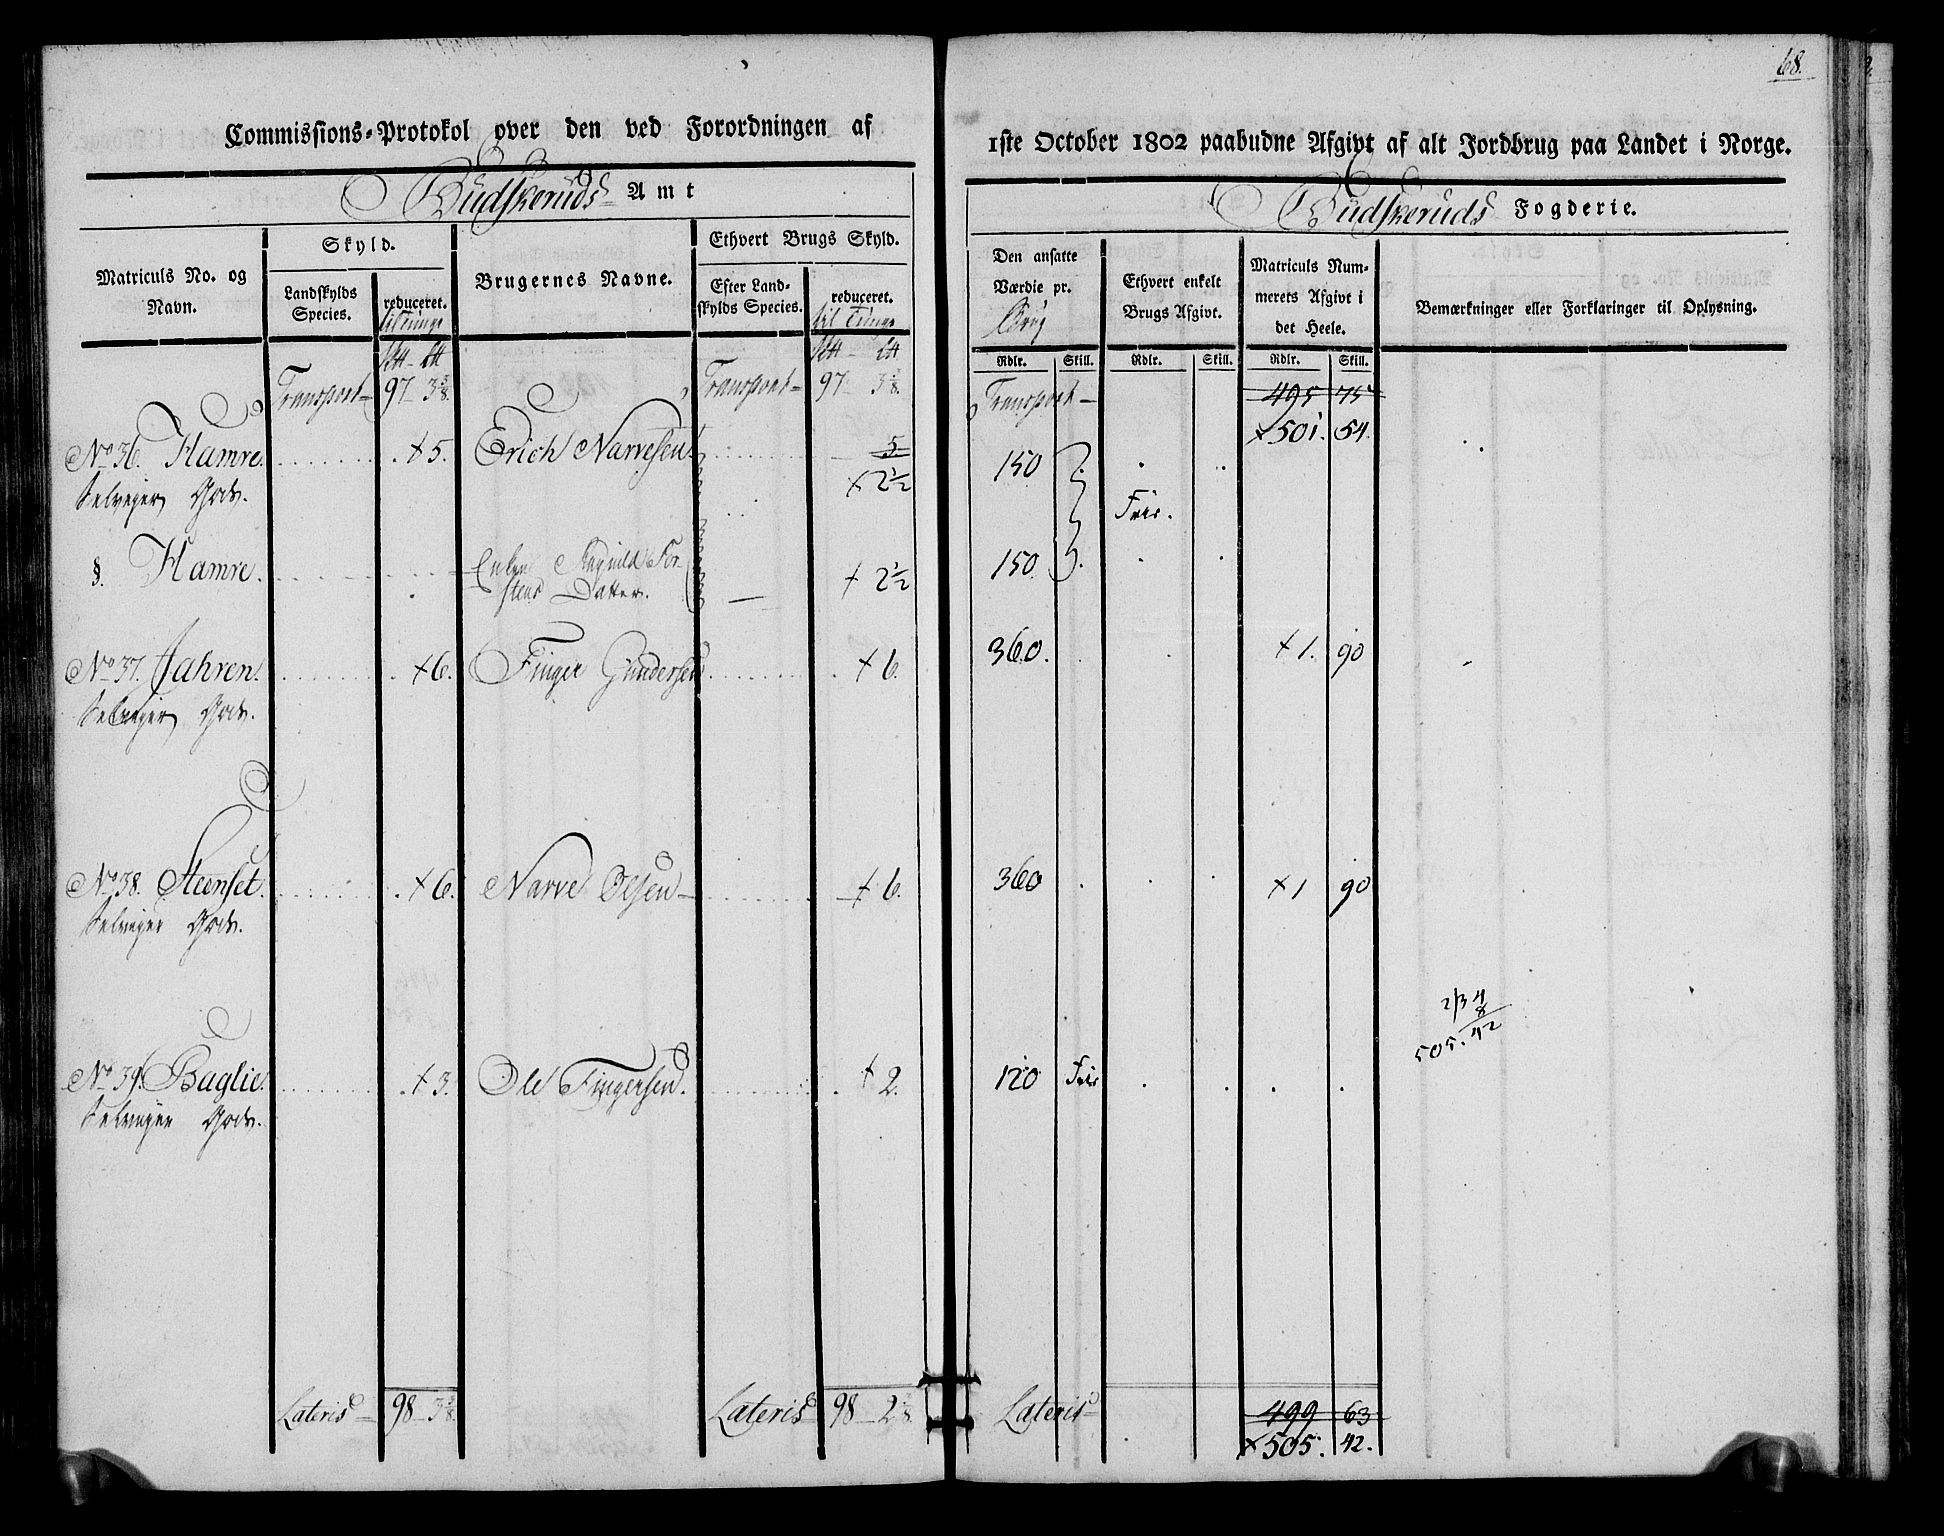 68.
Commissions-Protokol over den ved Forordningen af 1ste October 1802 paabudne Afgivt af alt Jordbrug paa Landet i Norge.
Budskeruds Amt
Budskeruds Fogderie.
Matriculs No. og Navn.
Skyld.
Landskylds Species.
reduceret. til Tunge
Brugernes Navne.
Ethvert Brugs Skyld.
Efter Landskylds Species.
reduceret. til Tunge
Den ansatte Værdie pr. Brug
Ethvert enkelt Brugs Afgivt.
Matriculs Nummerets Afgivt i det Heele.
Bemærkninger eller Forklaringer til Oplysning.
Rdlr. Skill. Rdlr. Skill. Rdlr. Skill.
Transport 97 3 3/8. Transport 97 3 3/8. Transport 495 75
+ 501. 54.
No 36. Hamre. + 5. Erich Narvesen. 5 150
Selvejer Gods. + 2 1/2 Frie.
§. Hamre. Enken Torstens Datter. + 2 1/2 150
No 37. Jahren. + 6. Finger Gundersen + 6. 360. + 1. 90
Selvejer Gods.
No 38. Steenset. + 6. Narve Olsen + 6. 360 + 1 90
Selvejer Gods.
4
8
505. 42
No 39. Baglie. + 3. Ole Fingersen. + 2. 120 Frie
Selvejer Gods.
Lateris 98 3 3/8. Lateris 98 2 3/8. Lateris 499 63
+ 505. 42.